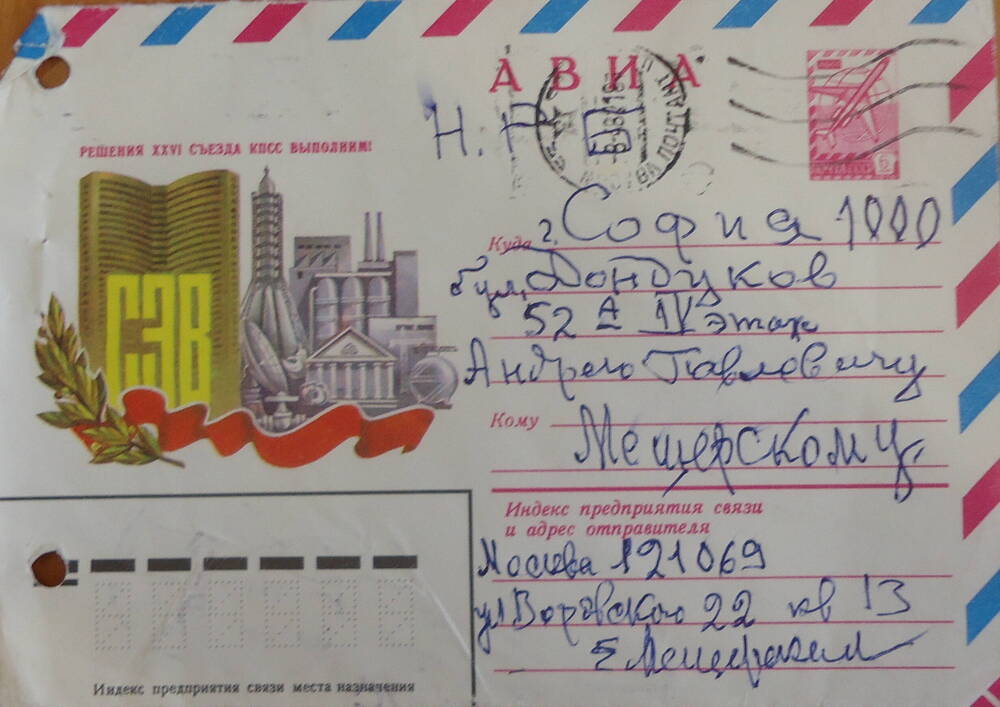 АВИА
Н.Р.Б.
РЕШЕНИЯ XXVI СЪЕЗДА КПСС ВЫПОЛНИМ!
СЭВ
ПОЧТАМТ
ПОЧТА СССР
6
Куда г. София 1000
бул. Дондуков
52 А IV этаж
Андрею Павловичу
Кому
Мещерскому
Индекс предприятия связи
и адрес отправителя
Москва 121069
ул Воровского 22 кв 13
Индекс предприятия связи места назначения